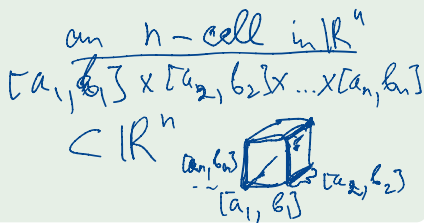 an n-cell in ℝⁿ
[a₁, b₁] × [a₂, b₂] × ... × [aₙ, bₙ]
⊂ ℝⁿ
[aₙ, bₙ]
...
[a₂, b₂]
[a₁, b₁]